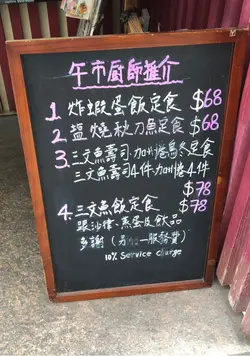 午市廚師推介
1. 炸蝦蛋飯定食 $68
2. 塩燒秋刀魚定食 $68
3. 三文魚壽司·加州捲烏冬定食
三文魚壽司4件·加州捲4件
$78
4. 三文魚飯定食 $78
跟沙律·蒸蛋及飲品
多謝 (另加一服務費)
10% Service charge